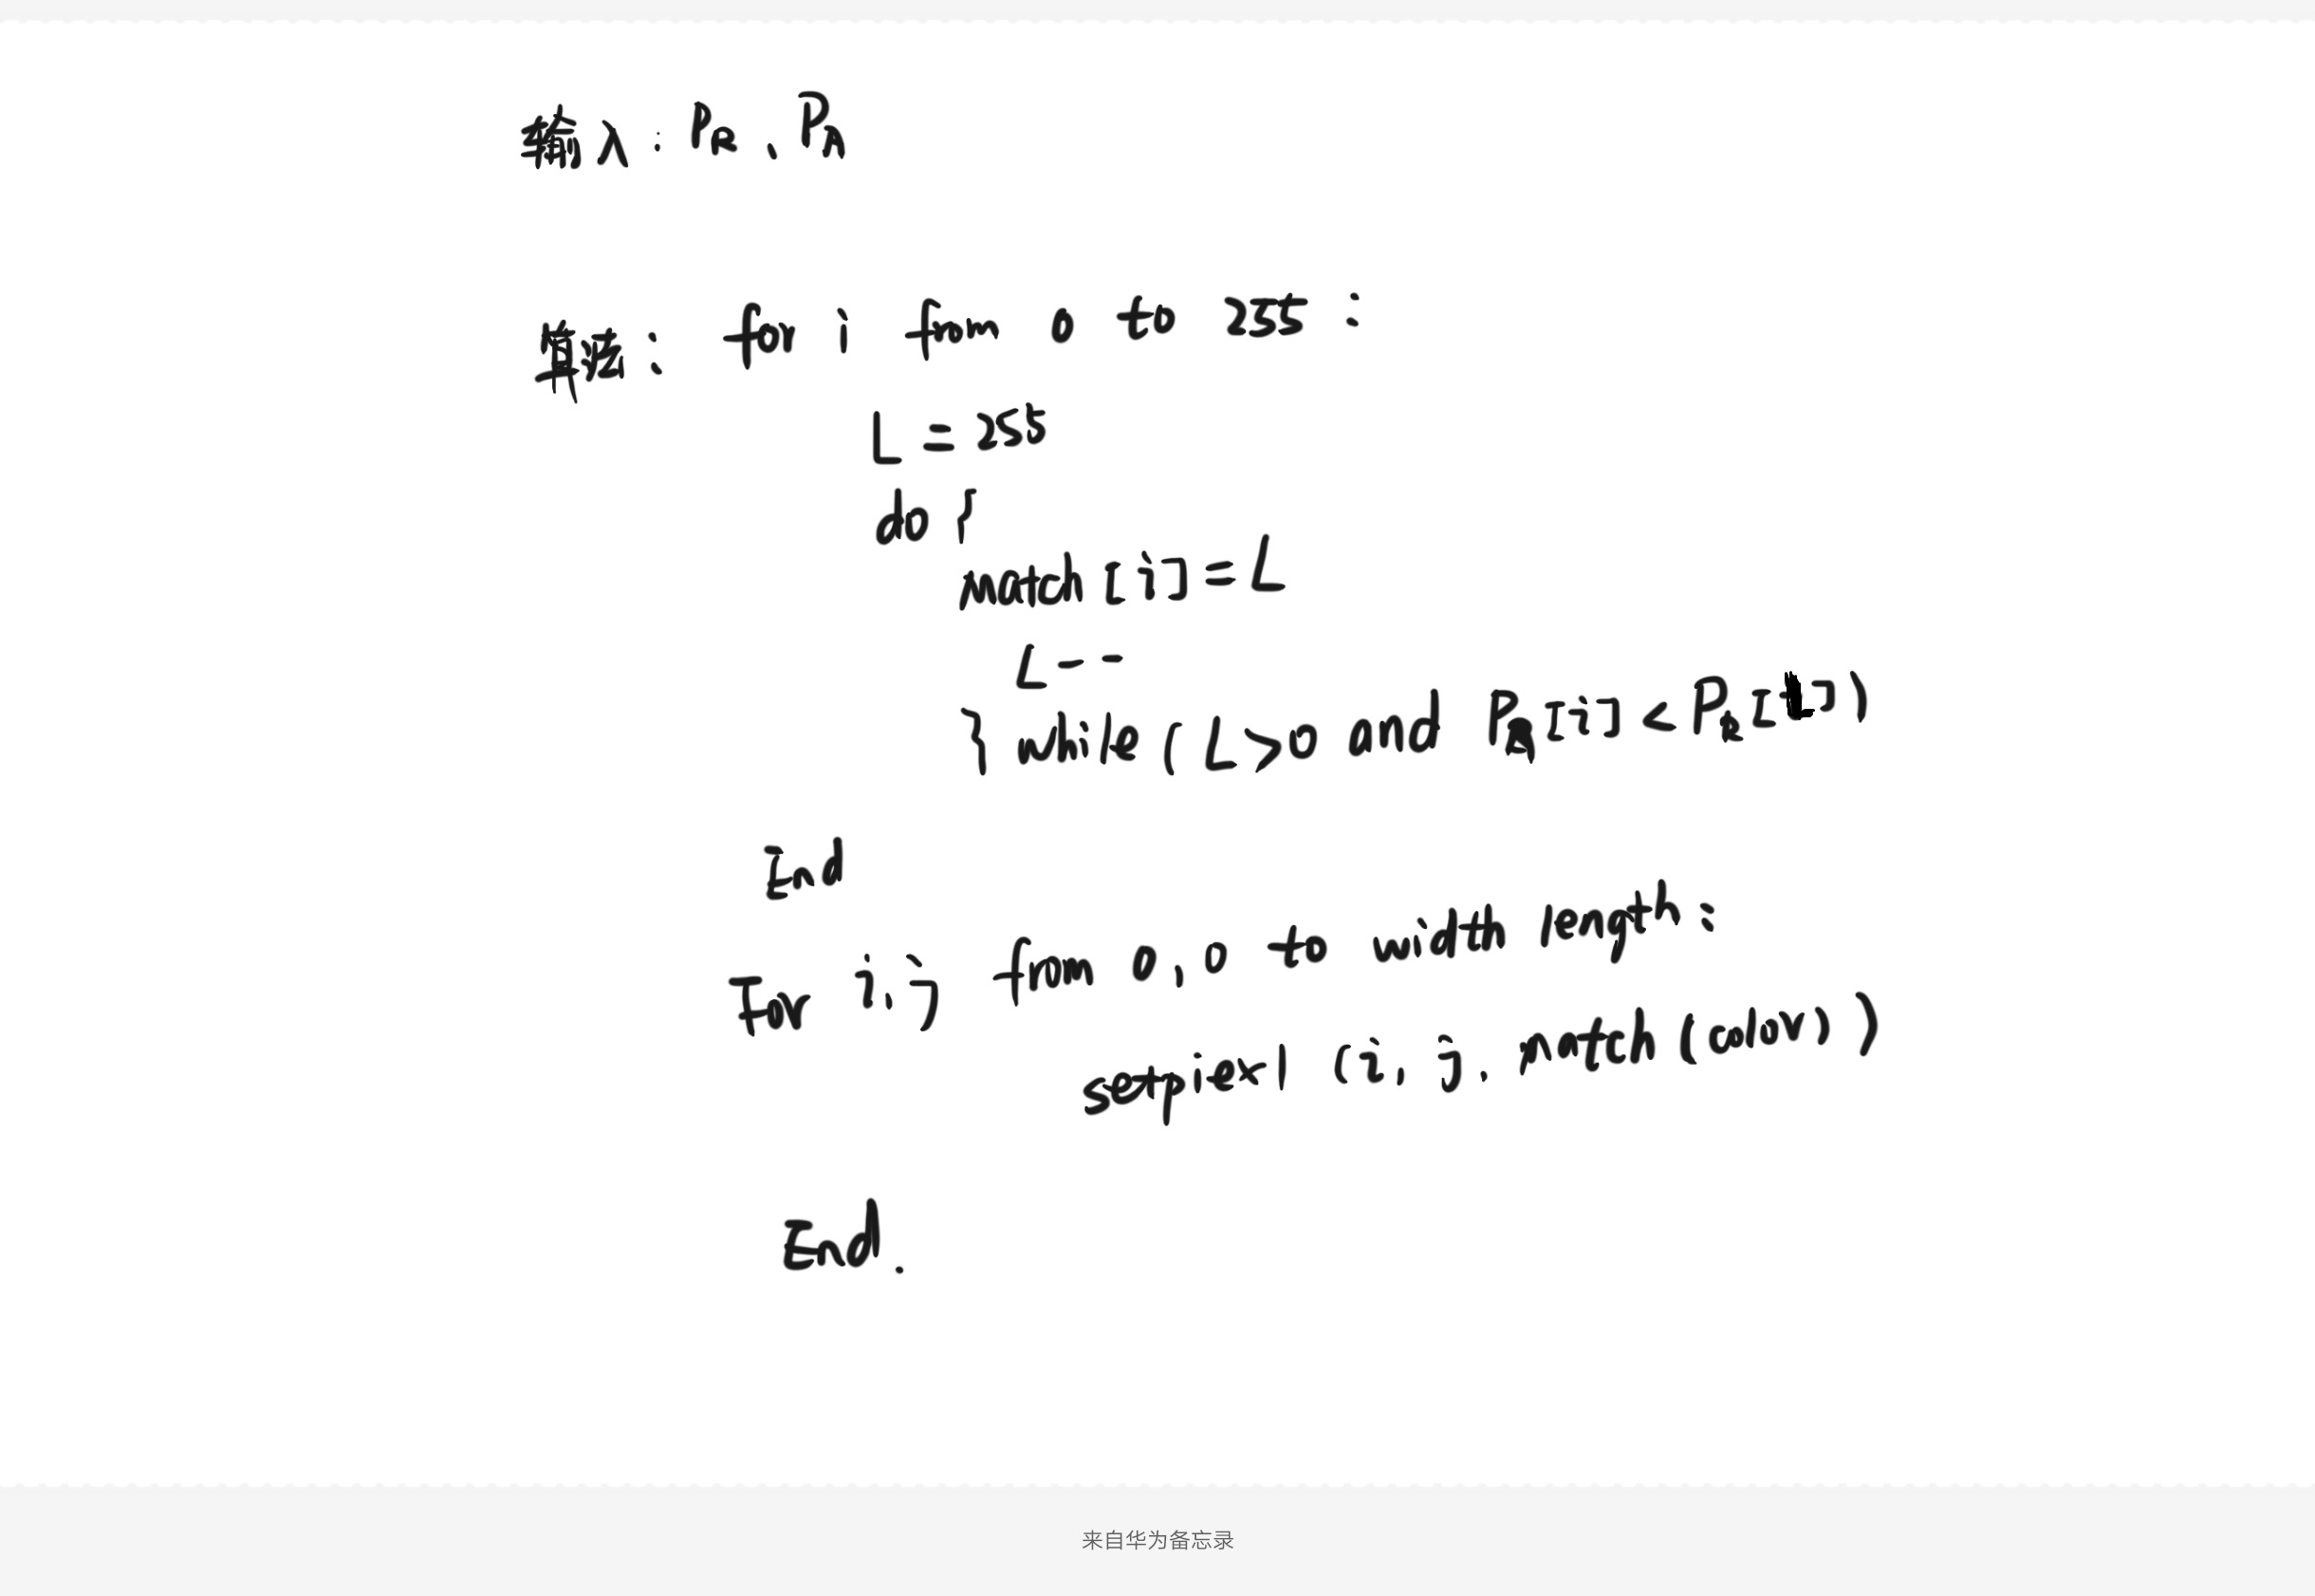 输入：PR、PA
算法：for i from 0 to 255：
L = 255
do {
match [i] = L
L--
} while ( L>0 and PA[i] < PR[L])
End
For i,j from 0,0 to width length：
setpiexl (i, j. match (color))
End.
来自华为备忘录